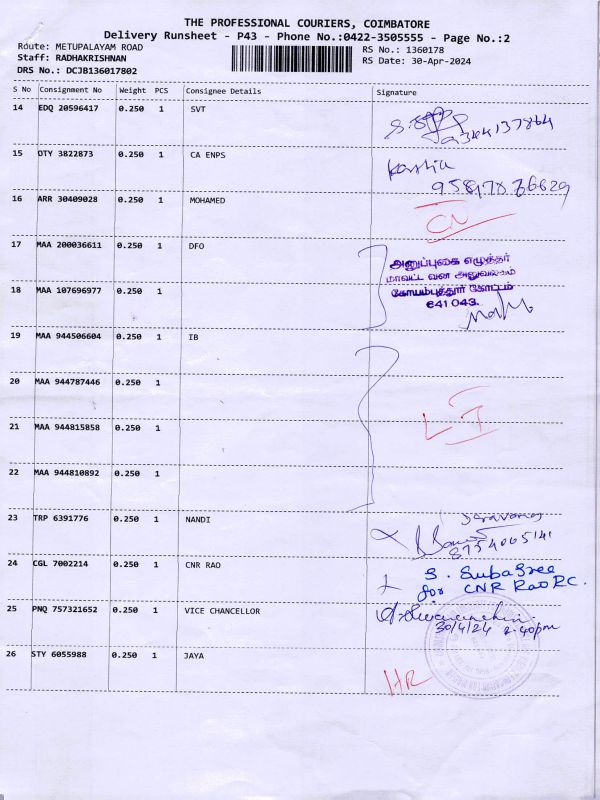 THE PROFESSIONAL COURIERS, COIMBATORE
Delivery Runsheet - P43 - Phone No.:0422-3505555 - Page No.:2
Route: METUPALAYAM ROAD
RS No.: 1360178
Staff: RADHAKRISHNAN
RS Date: 30-Apr-2024
DRS No.: DCJB136017802
S No Consignment No Weight PCS Consignee Details Signature
14 EDQ 20596417 0.250 1 SVT
15 OTY 3822873 0.250 1 CA ENPS
16 ARR 30409028 0.250 1 MOHAMED
17 MAA 200036611 0.250 1 DFO
அனுப்புகை எழுத்தர்
மாவட்ட வன அலுவலகம்
கோயம்புத்தூர் கோட்டம்
641 043.
18 MAA 107696977 0.250 1
19 MAA 944506604 0.250 1 IB
20 MAA 944787446 0.250 1
21 MAA 944815858 0.250 1
22 MAA 944810892 0.250 1
23 TRP 6391776 0.250 1 NANDI
8754005141
24 CGL 7002214 0.250 1 CNR RAO
S. SubaSree
for CNR Rao RC.
25 PNQ 757321652 0.250 1 VICE CHANCELLOR
30/4/24 2.40pm
26 STY 6055988 0.250 1 JAYA
HR